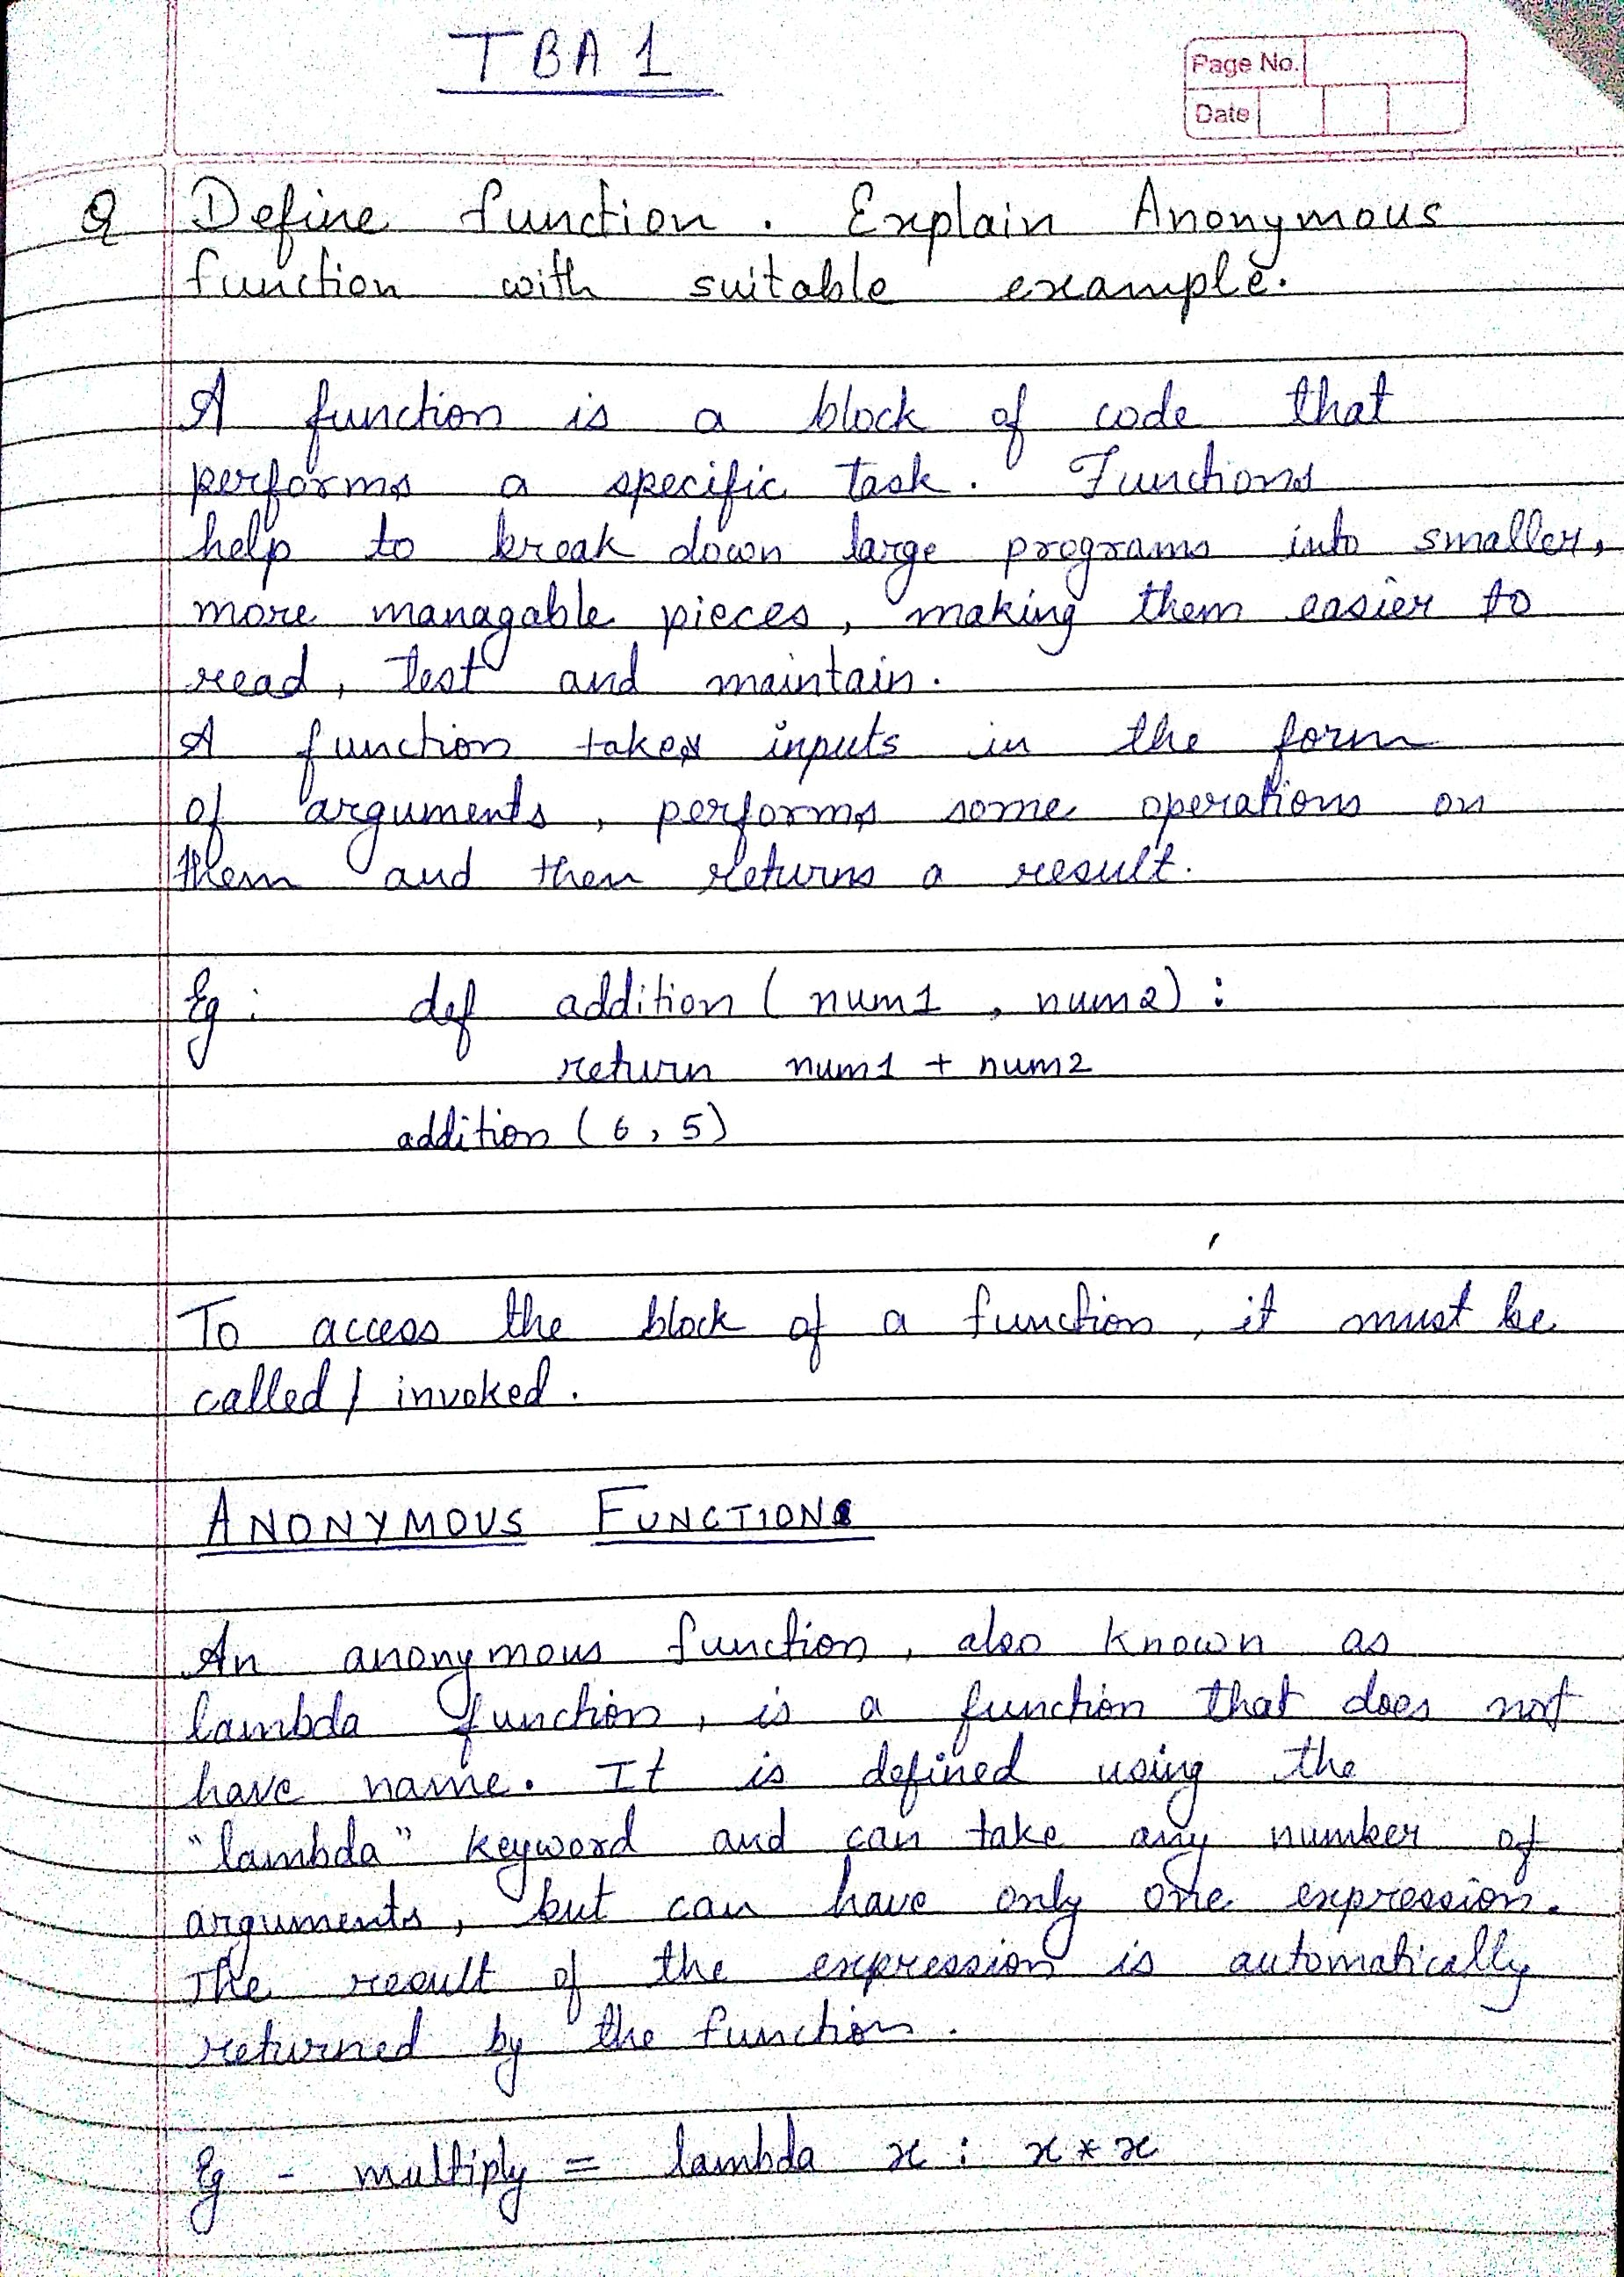 TBA 1
Page No.
Date
Q Define function. Explain Anonymous
function with suitable example.
A function is a block of code that
performs a specific task. Functions
help to break down large programs into smaller,
more managable pieces, making them easier to
read, test and maintain.
A function takes inputs in the form
of arguments, performs some operations on
them and then returns a result.
Eg : def addition ( num1 , num2) :
return num1 + num2
addition ( 6 , 5)
To access the block of a function, it must be
called / invoked.
ANONYMOUS FUNCTIONS
An anonymous function, also known as
lambda function, is a function that does not
have name. It is defined using the
"lambda" keyword and can take any number of
arguments, but can have only one expression.
The result of the expression is automatically
returned by the function.
Eg - multiply = lambda x : x * x